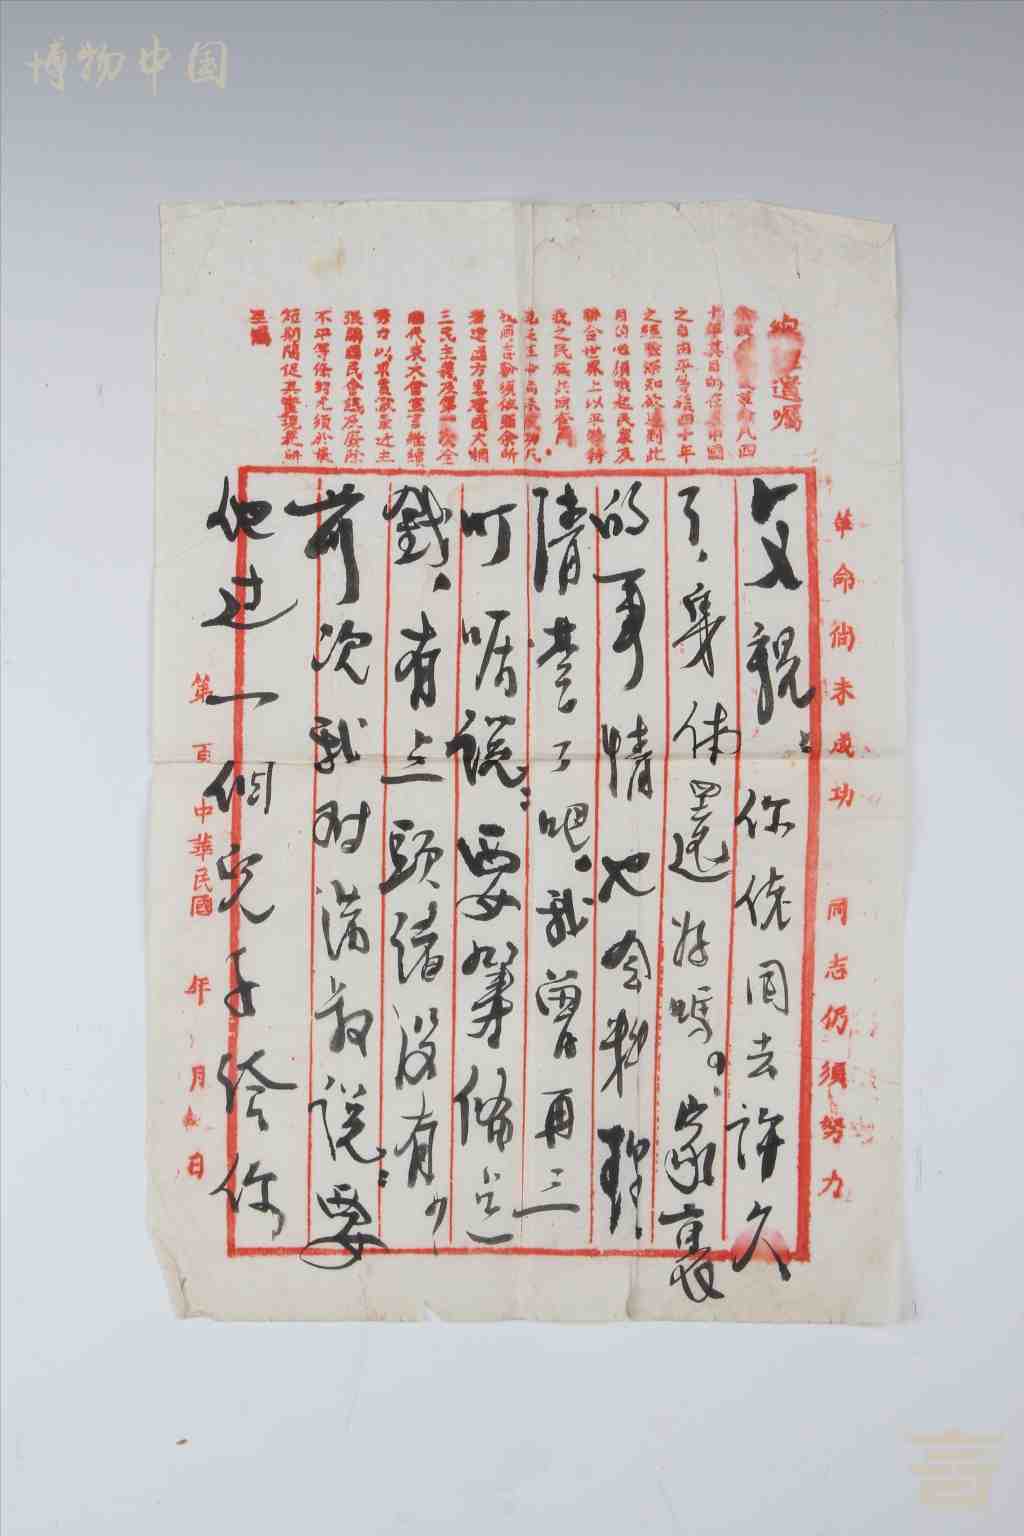 博物中国
總理遺囑
余致
革命凡四
十年其目的在
中國
之自由平等積四十年
之經驗深知欲達到此
目的必須喚起民眾及
聯合世界上以平等待
我之民族共同奮鬥
現
尚未
功凡
我同志務須依照余所
著建國方畧建國大綱
三民主義及第一次全
國代表大會宣言繼續
努力以求貫澈最近主
張開國民會議及廢除
不平等條約尤須於最
短期間促其實現是所
至囑
革命尚未成功 同志仍須努力
父親：你後回去許久
了，身体還好嗎。家裏
的事情也会料理
清楚了吧。我曾再三
叮嘱說：要籌備这
錢，有点頭绪没有？
前次我对滿叔說：要
他过一個児子给你
第 頁 中華民國 年 月 日